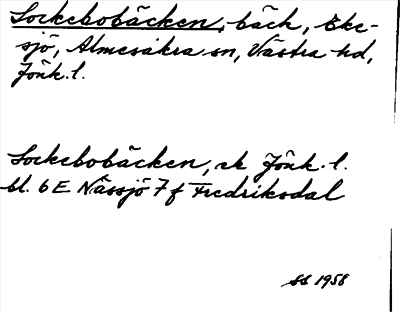 Sockebobäcken, bäck, Eke-
sjö, Almesåkra sn, Västra hd,
Jönk. l.
Sockebobäcken, ek Jönk. l.
bl. 6E Nässjö 7f Fredriksdal
SS 1958